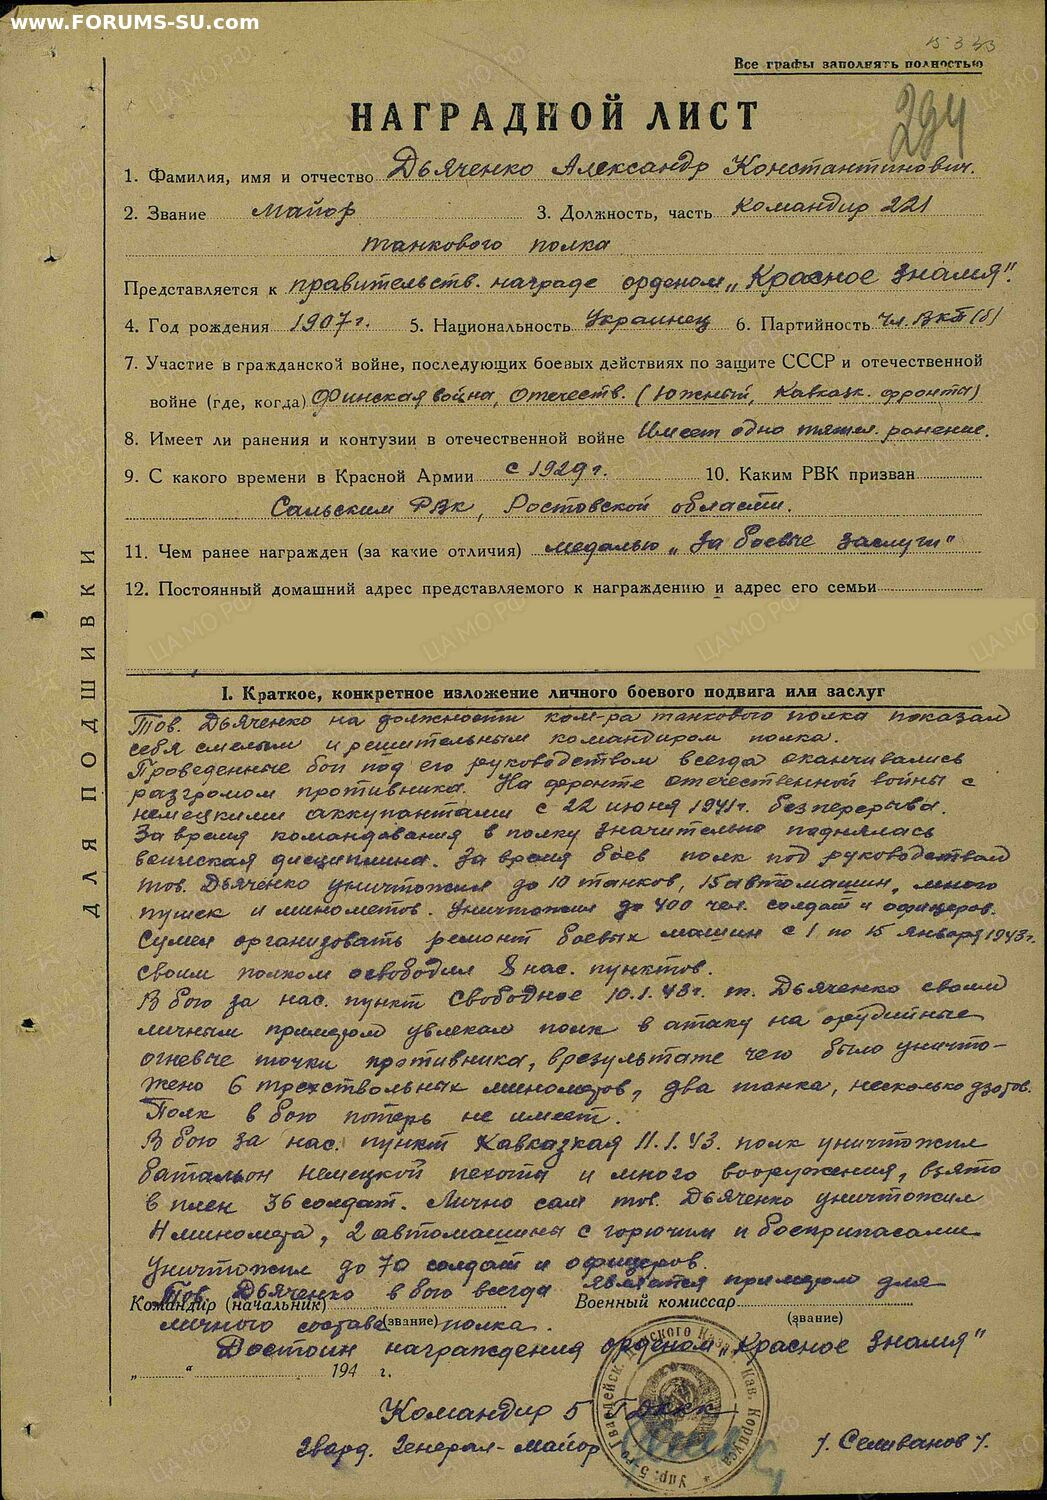 www.FORUMS-SU.com
15333
Все графы заполнять полностью
294
НАГРАДНОЙ ЛИСТ
1. Фамилия, имя и отчество Дьяченко Александр Константинович.
2. Звание майор 3. Должность, часть командир 221
танкового полка
Представляется к правительств. награде орденом „Красное Знамя".
4. Год рождения 1907г. 5. Национальность Украинец 6. Партийность чл. ВКП(б)
7. Участие в гражданской войне, последующих боевых действиях по защите СССР и отечественной
войне (где, когда) Финская война, Отечеств. (Южный, Кавказк. фронты)
8. Имеет ли ранения и контузии в отечественной войне Имеет одно тяжел. ранение.
9. С какого времени в Красной Армии с 1929г. 10. Каким РВК призван
Сальским РВК, Ростовской области.
11. Чем ранее награжден (за какие отличия) медалью „За боевые заслуги"
12. Постоянный домашний адрес представляемого к награждению и адрес его семьи
ДЛЯ ПОДШИВКИ
I. Краткое, конкретное изложение личного боевого подвига или заслуг
Тов. Дьяченко на должности ком-ра танкового полка показал
себя смелым и решительным командиром полка.
Проведенные бои под его руководством всегда оканчивались
разгромом противника. На фронте отечественной войны с
немецкими аккупантами с 22 июня 1941г. без перерыва.
За время командования в полку значительно поднялась
воинская дисциплина. За время боев полк под руководством
тов. Дьяченко уничтожил до 10 танков, 15 автомашин, много
пушек и минометов. Уничтожил до 400 чел. солдат и офицеров.
Сумел организовать ремонт боевых машин с 1 по 15 января 1943г.
своим полком освободил 8 нас. пунктов.
В бою за нас. пункт Свободное 10.1.43г. т. Дьяченко своим
личным примером увлекал полк в атаку на орудийные
огневые точки противника, в результате чего было уничто-
жено 6 трехствольных минометов, два танка, несколько дзотов.
Полк в бою потерь не имеет.
В бою за нас. пункт Кавказкая 11.1.43. полк уничтожил
батальон немецкой пехоты и много вооружения, взято
в плен 36 солдат. Лично сам тов. Дьяченко уничтожил
4 миномета, 2 автомашины с горючим и боеприпасами
уничтожил до 70 солдат и офицеров.
Тов. Дьяченко в бою всегда является примером для
Командир (начальник) Военный комиссар
(звание)
личного состава (звание) полка.
Достоин награждения орденом „Красное Знамя"
„ " 194 г.
Командир 5 ГДККК
Гвард. Генерал-майор /. Селиванов /.